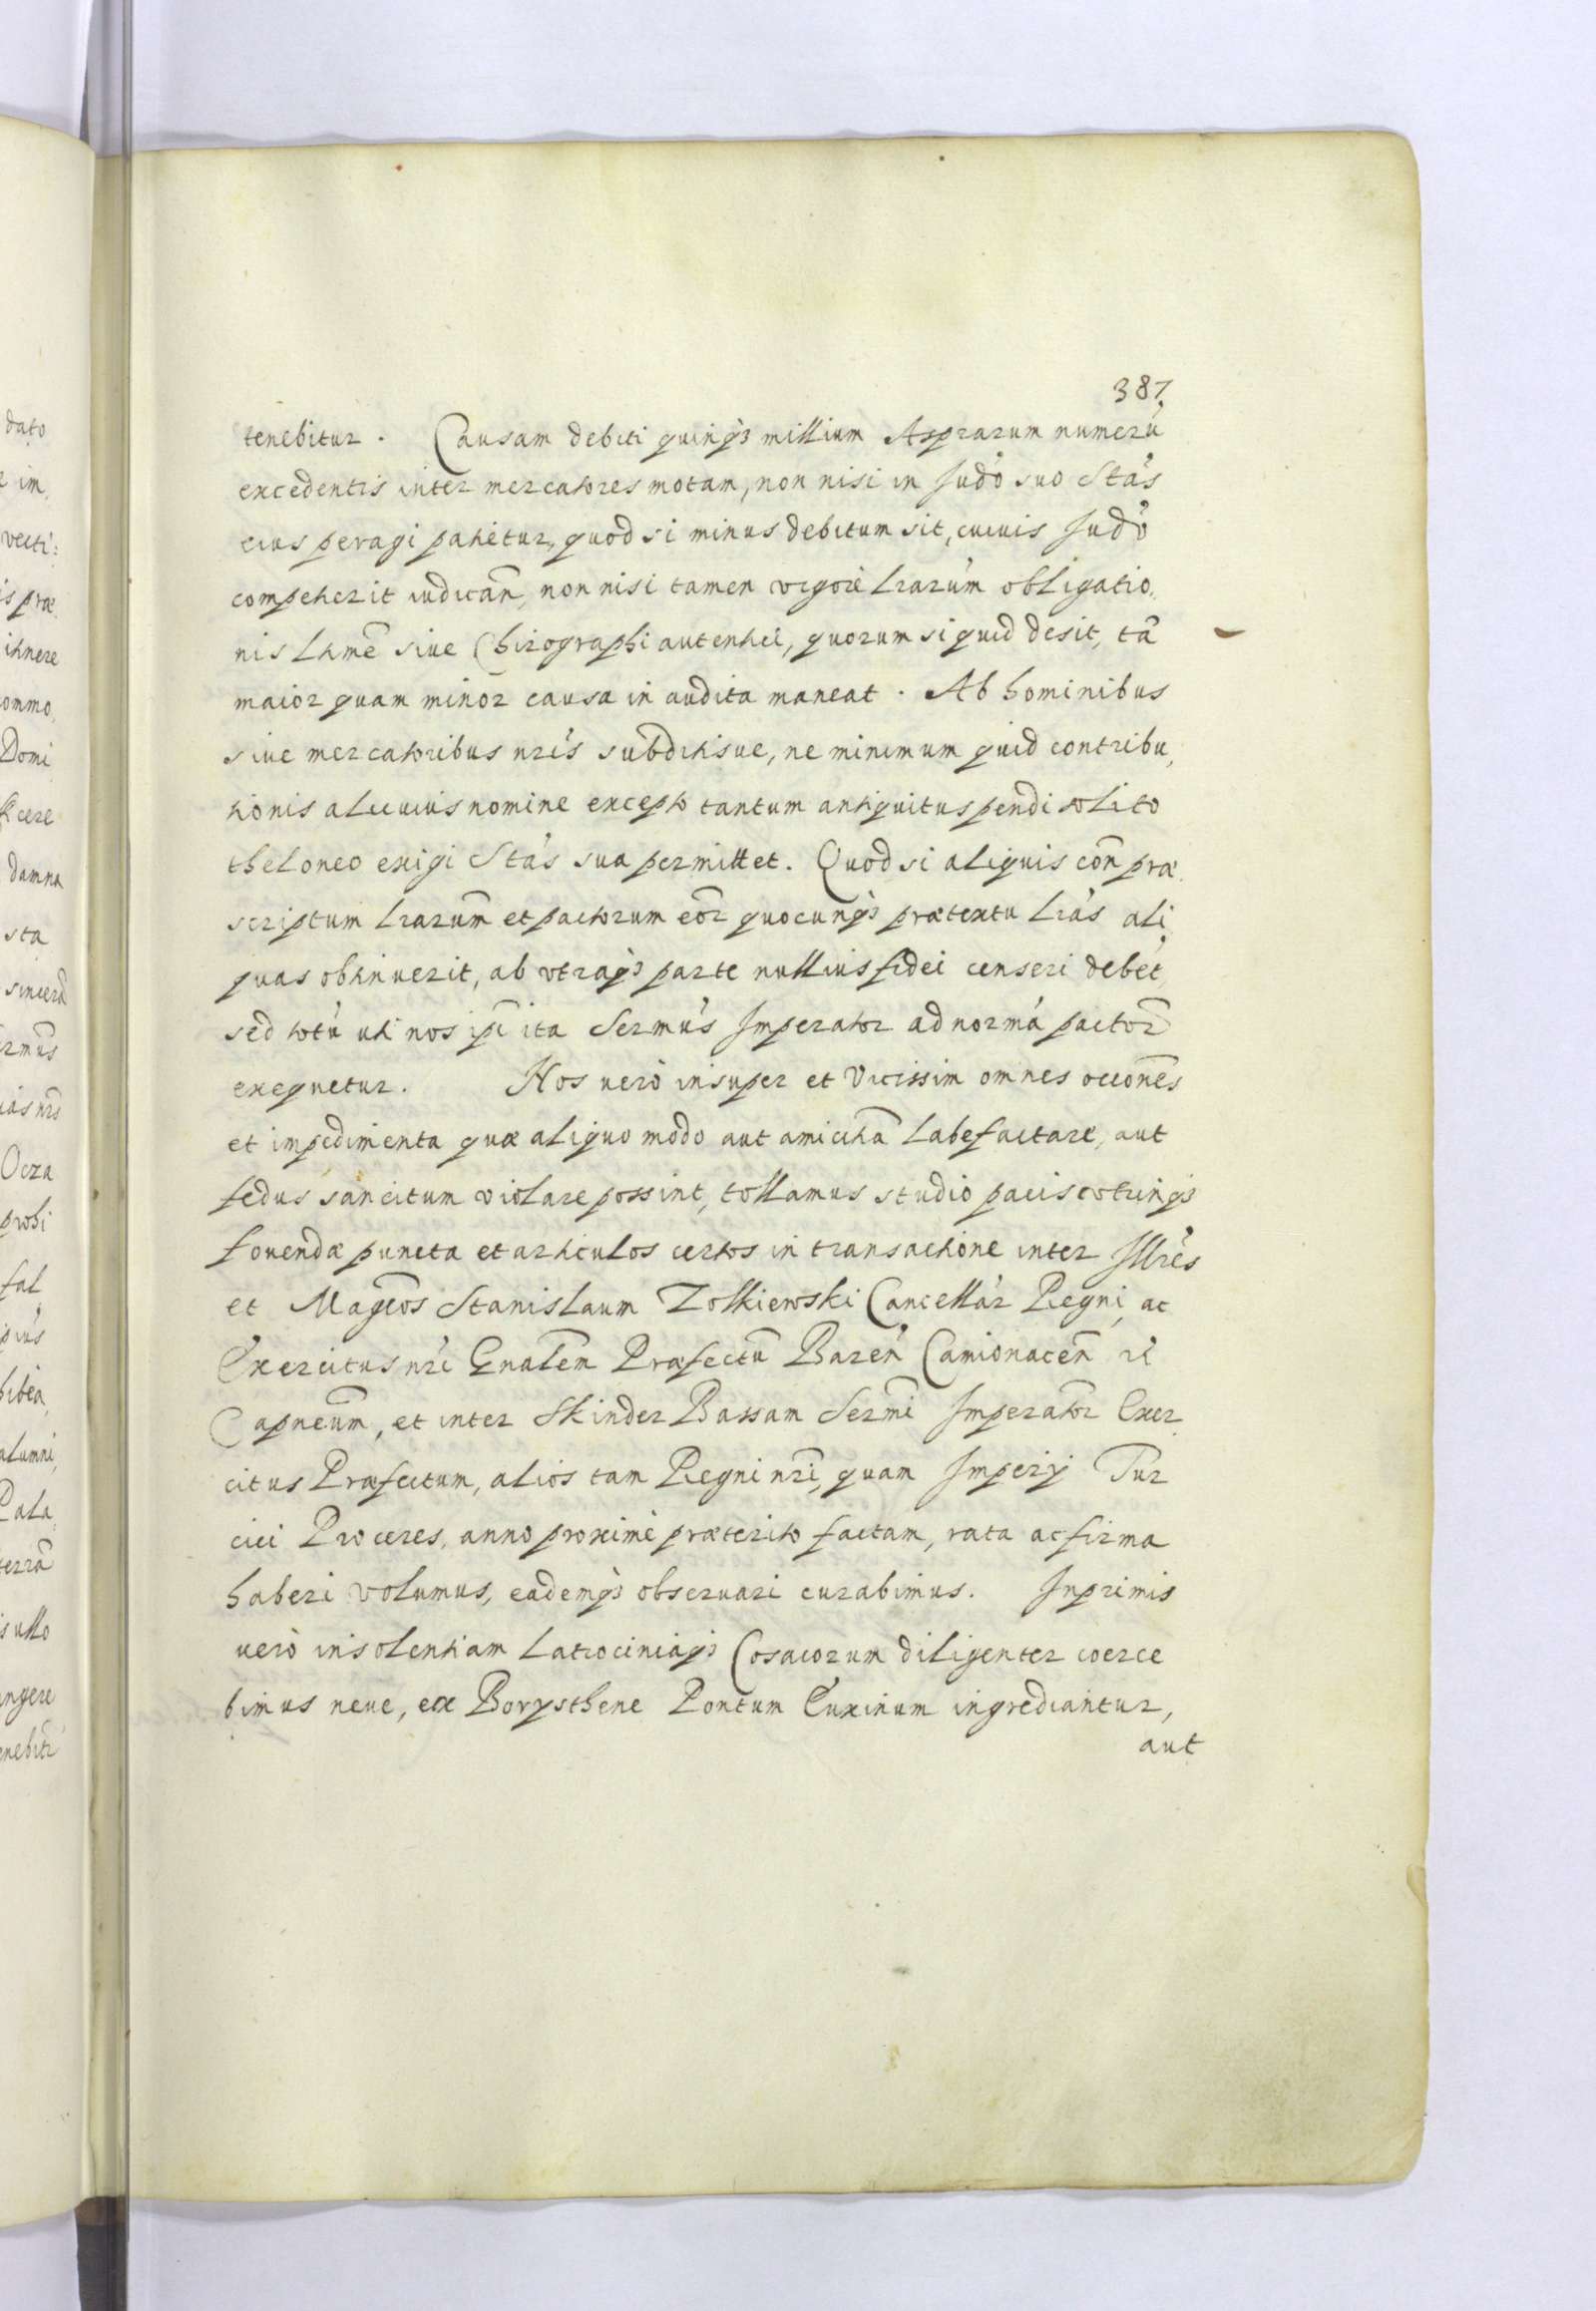 387
tenebitur. Causam debiti quinqȝ millium Asprarum numerũ
excedentis inter mercatores motam, non nisi in Judõ suo Stãs
eius peragi patietur, quod si minus debitum sit, cuiuis Judõ
competierit iudicañ, non nisi tamen vigore lrarũm obligatio,
nis ltimẽ siue Chirographi autentici, quorum si quid desit, tã
maior quam minor causa in audita maneat. Ab hominibus
siue mercatoribus nrĩs subditisue, ne minimum quid contribu,
tionis alicuius nomine excepto tantum antiquitus pendi solito
theloneo exigi Stãs sua permittet. Quod si aliquis coñ præ,
scriptum lrarũm et pactorum eõr quocunqȝ prætextu lrãs ali,
quas obtinuerit, ab vtraqȝ parte nullius fidei censeri debet,
sed totũ uti nos ipĩ ita Sermũs Imperator ad normã pactor̃
exequetur. Nos verò insuper et vicissim omnes occões
et impedimenta quæ aliquo modo aut amicitiã labefactare, aut
fedus sancitum violare possint, tollamus studio pacis
fouendæ puncta et articulos certos in transactione inter Illrẽs
et Magcõs Stanislaum Zolkiewski Cancellãr Regni, ac
Exercitus nrĩ Gnalẽm Præfectũ Bareñ Camionaceñ
Capneũm, et inter Skinder Bassam Sermĩ Imperator̃ Exer,
citus Præfectum, alios tam Regni nrĩ, quam Imperij Tur
cici Proceres, anno proximè præterito factam, rata ac firma
haberi volumus, eademqȝ obseruari curabimus. Inprimis
verò insolentiam latrociniaqȝ Cosacorum diligenter coerce
bimus neue, ex Borysthene Pontum Euxinum ingrediantur,
aut